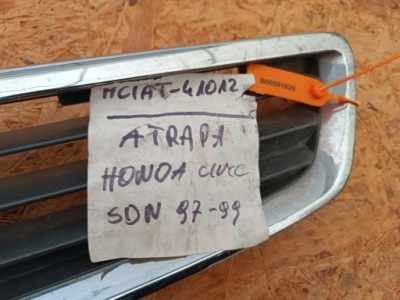 HCIAT-41012
ATRAPA
HONDA CIVIC
SDN 97-99
B00091826